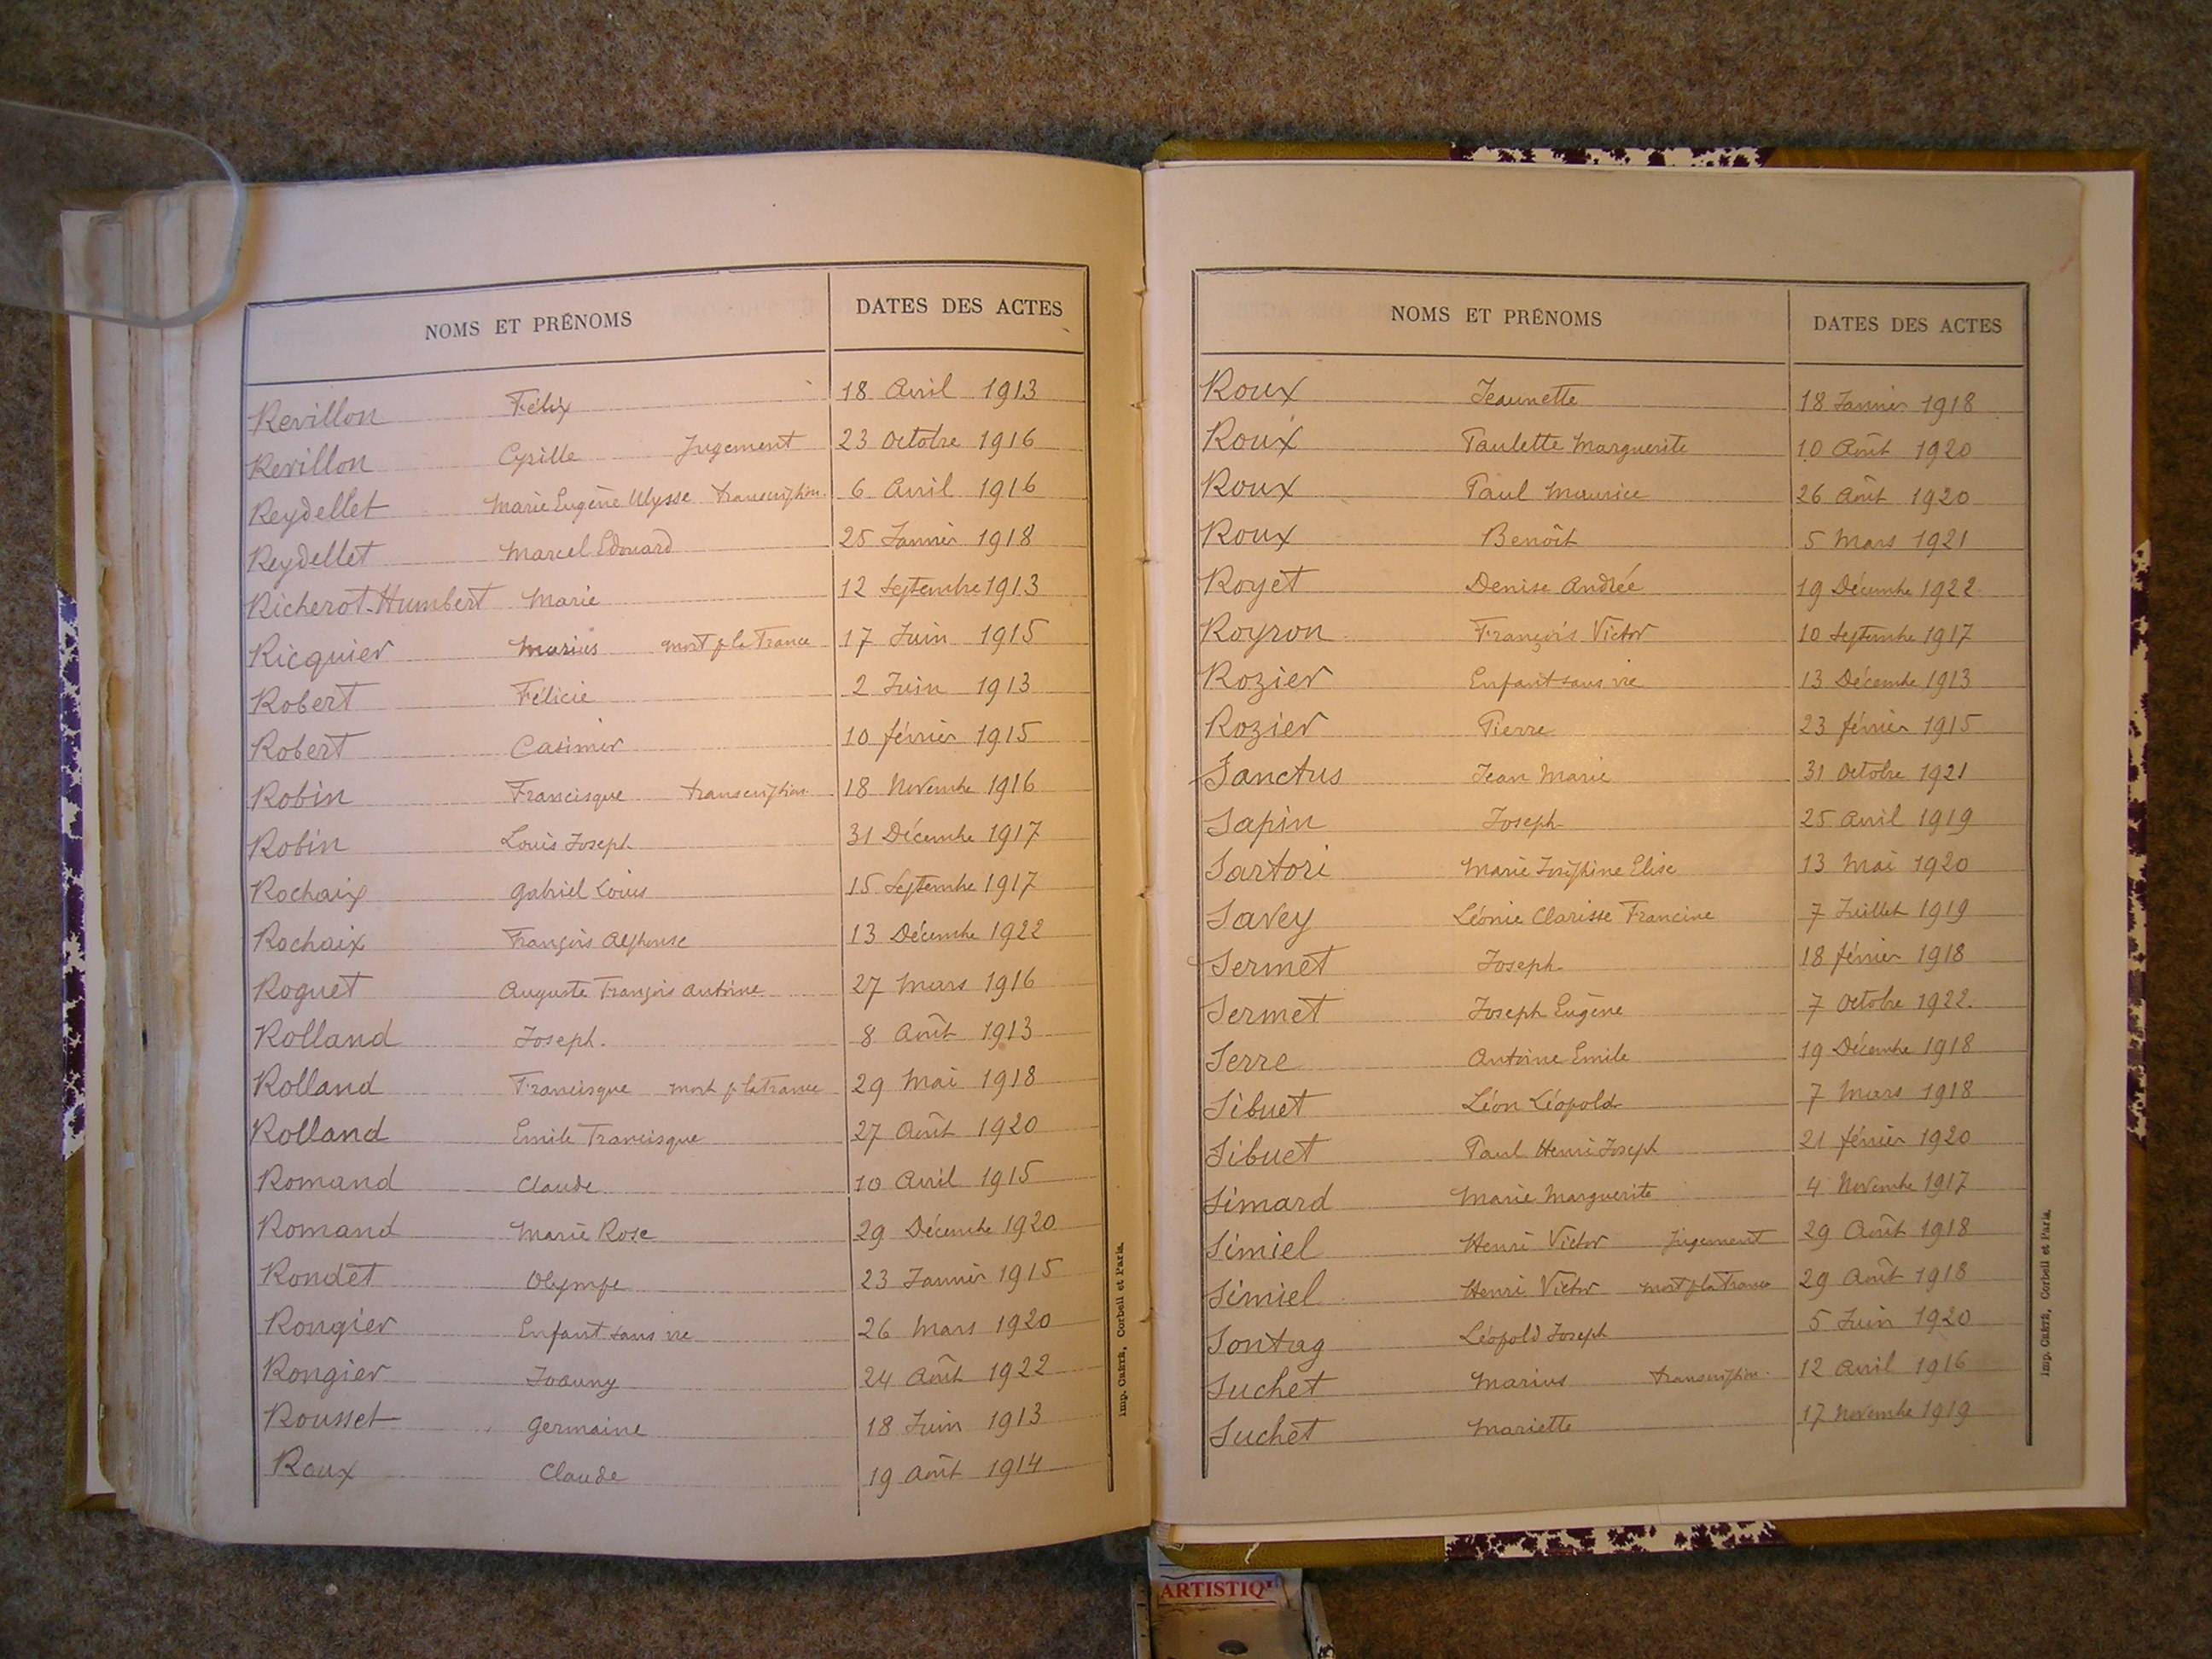 NOMS ET PRÉNOMS DATES DES ACTES
Revillon Félix 18 Avril 1913
Revillon Cyrille Jugement 23 Octobre 1916
Reydellet Marie Eugène Ulysse transcription 6 Avril 1916
Reydellet Marcel Edouard 25 Janvier 1918
Richerot-Humbert Marie 12 Septembre 1913
Ricquier Marius mort p la France 17 Juin 1915
Robert Félicie 2 Juin 1913
Robert Casimir 10 février 1915
Robin Francisque transcription 18 Novembre 1916
Robin Louis Joseph 31 Décembre 1917
Rochaix Gabriel Louis 15 Septembre 1917
Rochaix François Alphonse 13 Décembre 1922
Roguet Auguste François Antoine 27 Mars 1916
Rolland Joseph. 8 Août 1913
Rolland Francisque mort p la France 29 Mai 1918
Rolland Emile Francisque 27 Août 1920
Romand Claude 10 Avril 1915
Romand Marie Rose 29 Décembre 1920
Rondet Olympe 23 Janvier 1915
Rongier Enfant sans vie 26 Mars 1920
Rongier Joanny 24 Août 1922
Rousset Germaine 18 Juin 1913
Roux Claude 19 Août 1914
Imp. CRÉTÉ, Corbeil et Paris.
NOMS ET PRÉNOMS DATES DES ACTES
Roux Jeannette 18 Janvier 1918
Roux Paulette Marguerite 10 Août 1920
Roux Paul Maurice 26 Août 1920
Roux Benoît 5 Mars 1921
Royet Denise Andrée 19 Décembre 1922
Royron François Victor 10 Septembre 1917
Rozier Enfant sans vie 13 Décembre 1913
Rozier Pierre 23 février 1915
Sanctus Jean Marie 31 Octobre 1921
Sapin Joseph 25 Avril 1919
Sartori Marie Joséphine Elise 13 Mai 1920
Savey Léonie Clarisse Francine 7 Juillet 1919
Sermet Joseph 18 février 1918
Sermet Joseph Eugène 7 Octobre 1922.
Serre Antoine Emile 19 Décembre 1918
Sibuet Léon Léopold 7 Mars 1918
Sibuet Paul Henri Joseph 21 février 1920
Simard Marie Marguerite 4 Novembre 1917
Simiel Henri Victor Jugement 29 Août 1918
Simiel Henri Victor mort p la France 29 Août 1918
Sontag Léopold Joseph 5 Juin 1920
Suchet Marius transcription 12 Avril 1916
Suchet Mariette 17 Novembre 1919
Imp. CRÉTÉ, Corbeil et Paris.